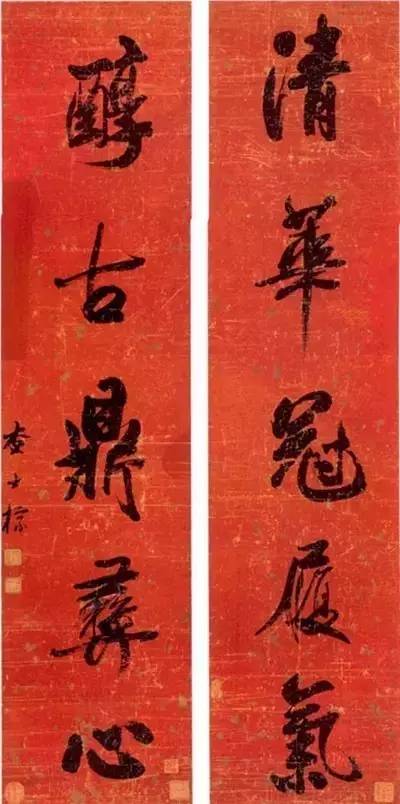 清華冠履氣
醇古鼎彝心
查士標